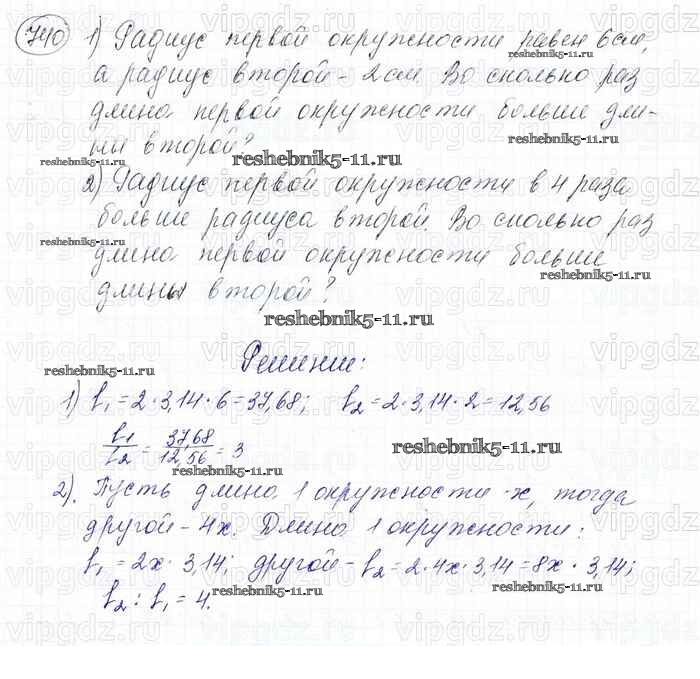 740 1) Радиус первой окружности равен 6 см,
а радиус второй - 2 см. Во сколько раз
длина первой окружности больше дли-
ны второй?
reshebnik5-11.ru
2) Радиус первой окружности в 4 раза
больше радиуса второй. Во сколько раз
длина первой окружности больше
длины второй?
reshebnik5-11.ru
Решение:
1) ℓ₁ = 2 · 3,14 · 6 = 37,68; ℓ₂ = 2 · 3,14 · 2 = 12,56
ℓ₁/ℓ₂ = 37,68/12,56 = 3
reshebnik5-11.ru
2). Пусть длина 1 окружности - x, тогда
другой - 4x. Длина 1 окружности:
ℓ₁ = 2x · 3,14; другой - ℓ₂ = 2 · 4x · 3,14 = 8x · 3,14;
ℓ₂ : ℓ₁ = 4.
reshebnik5-11.ru
vipgdz